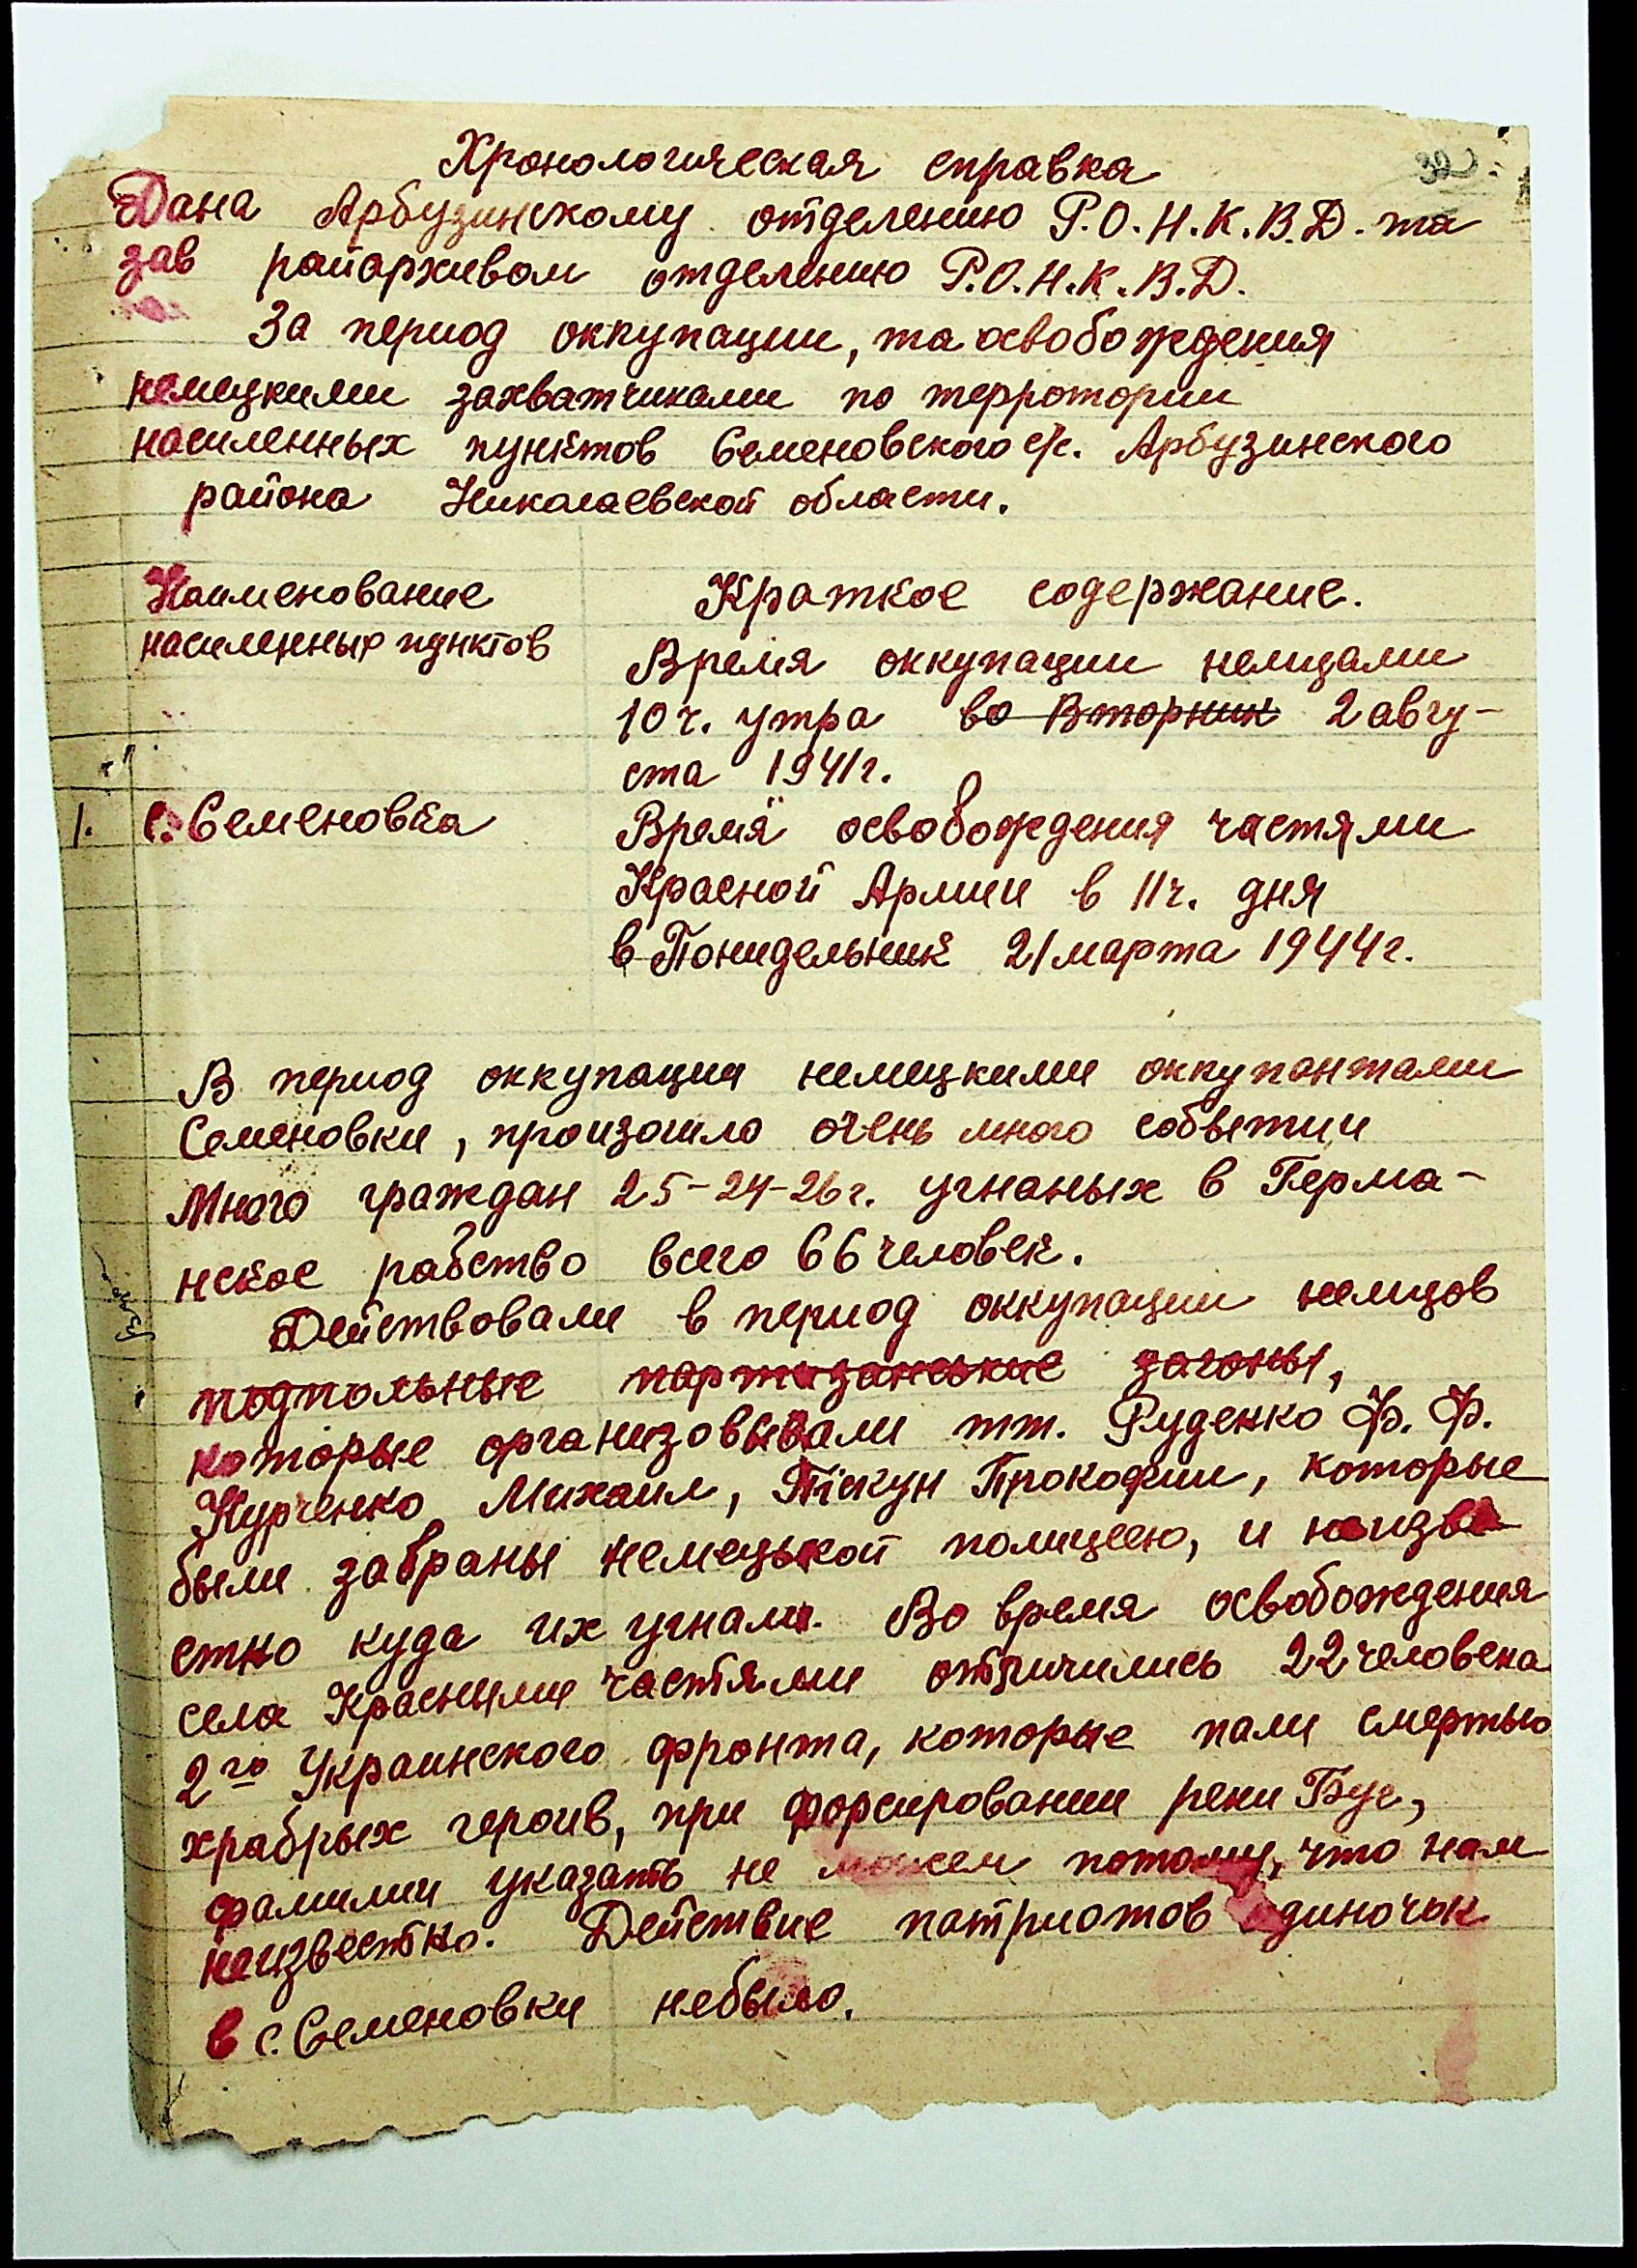 32
Хронологическая справка
Дана Арбузинскому отделению Р.О.Н.К.В.Д. та
зав райархивом отделению Р.О.Н.К.В.Д.
За период оккупации, та освобождения
немецкими захватчиками по терротории
насиленных пунктов Семеновского с/с. Арбузинского
района Николаевской области.
Наименование
насиленных пунктов
Краткое содержание.
Время оккупации немицами
10 ч. утра во Вторник 2 авгу-
ста 1941г.
1. с. Семеновка
Время освобождения частями
Красной Армии в 11ч. дня
в Понидельник 21 марта 1944г.
В период оккупации немецкими оккупантами
Семеновки, произошло очень много событии
Много граждан 25-24-26г. угнаных в Герма-
нское рабство всего 66 человек.
Действовали в период оккупации немицов
подпольные партизанськие загоны,
которые организовывали тт. Руденко Ф. Ф.
Курченко Михаил, Піскун Прокофии, которые
были забраны немецькой полицеею, и неизве
стно куда их угнали. Во время освобождения
села Красными частями отличились 22 человека
2го Украинского фронта, которые пали смертью
храбрых героив, при форсировании реки Буг,
фамилии указать не можем потому, что нам
неизвестно. Действие патриотов одиночок
в с. Семеновки небыло.